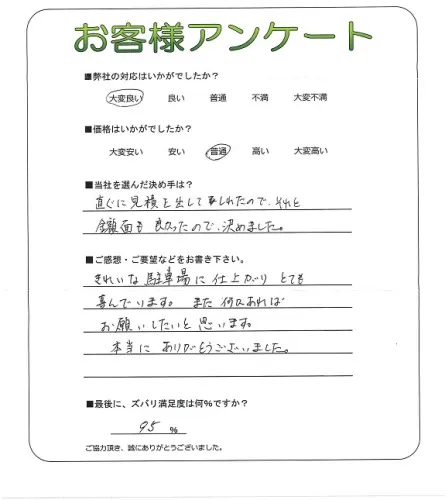 お客様アンケート
■弊社の対応はいかがでしたか？
大変良い 良い 普通 不満 大変不満
■価格はいかがでしたか？
大変安い 安い 普通 高い 大変高い
■当社を選んだ決め手は？
直ぐに見積を出して下しれたので、それと
金額面も良かったので、決めました。
■ご感想・ご要望などをお書き下さい。
きれいな駐車場に仕上がり とても
喜んでいます。 また 何かあれば
お願いしたいと思います。
本当に ありがとうございました。
■最後に、ズバリ満足度は何％ですか？
95 ％
ご協力頂き、誠にありがとうございました。